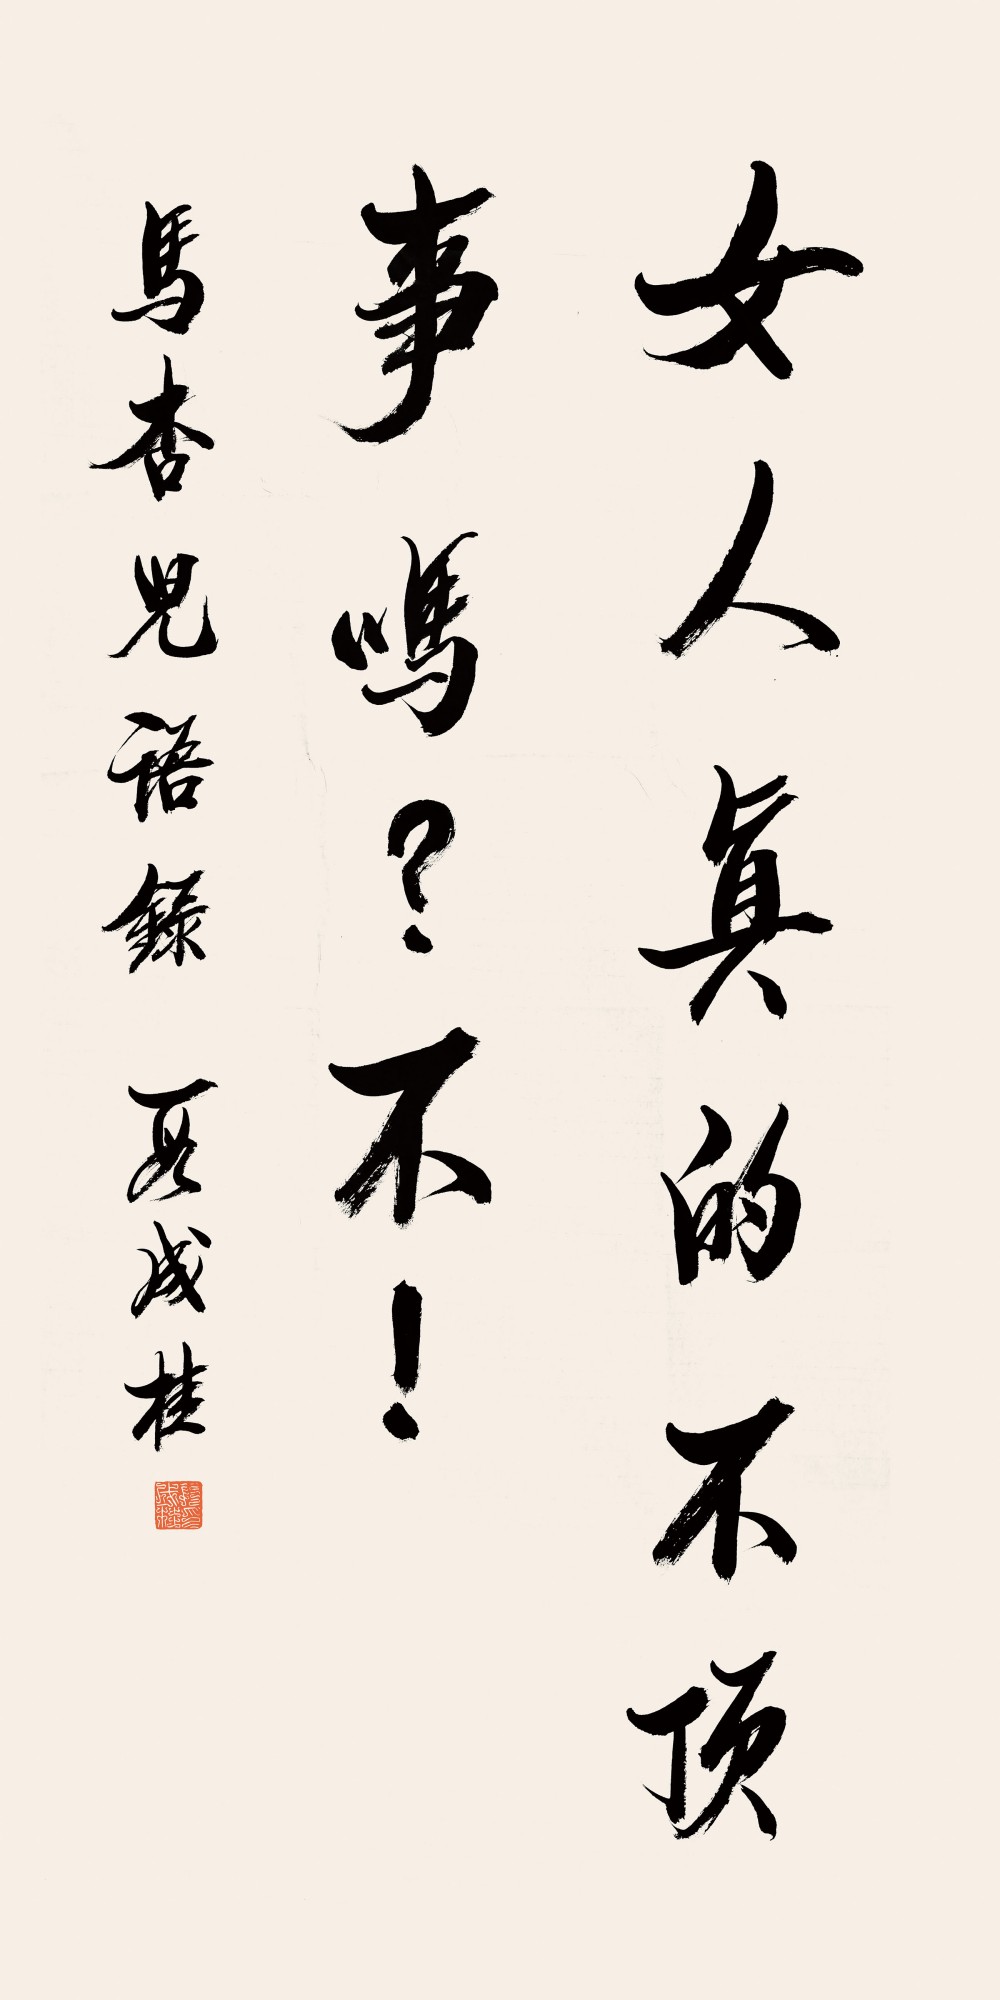 女人真的不顶
事嗎？不！
馬杏兒語錄 段成桂